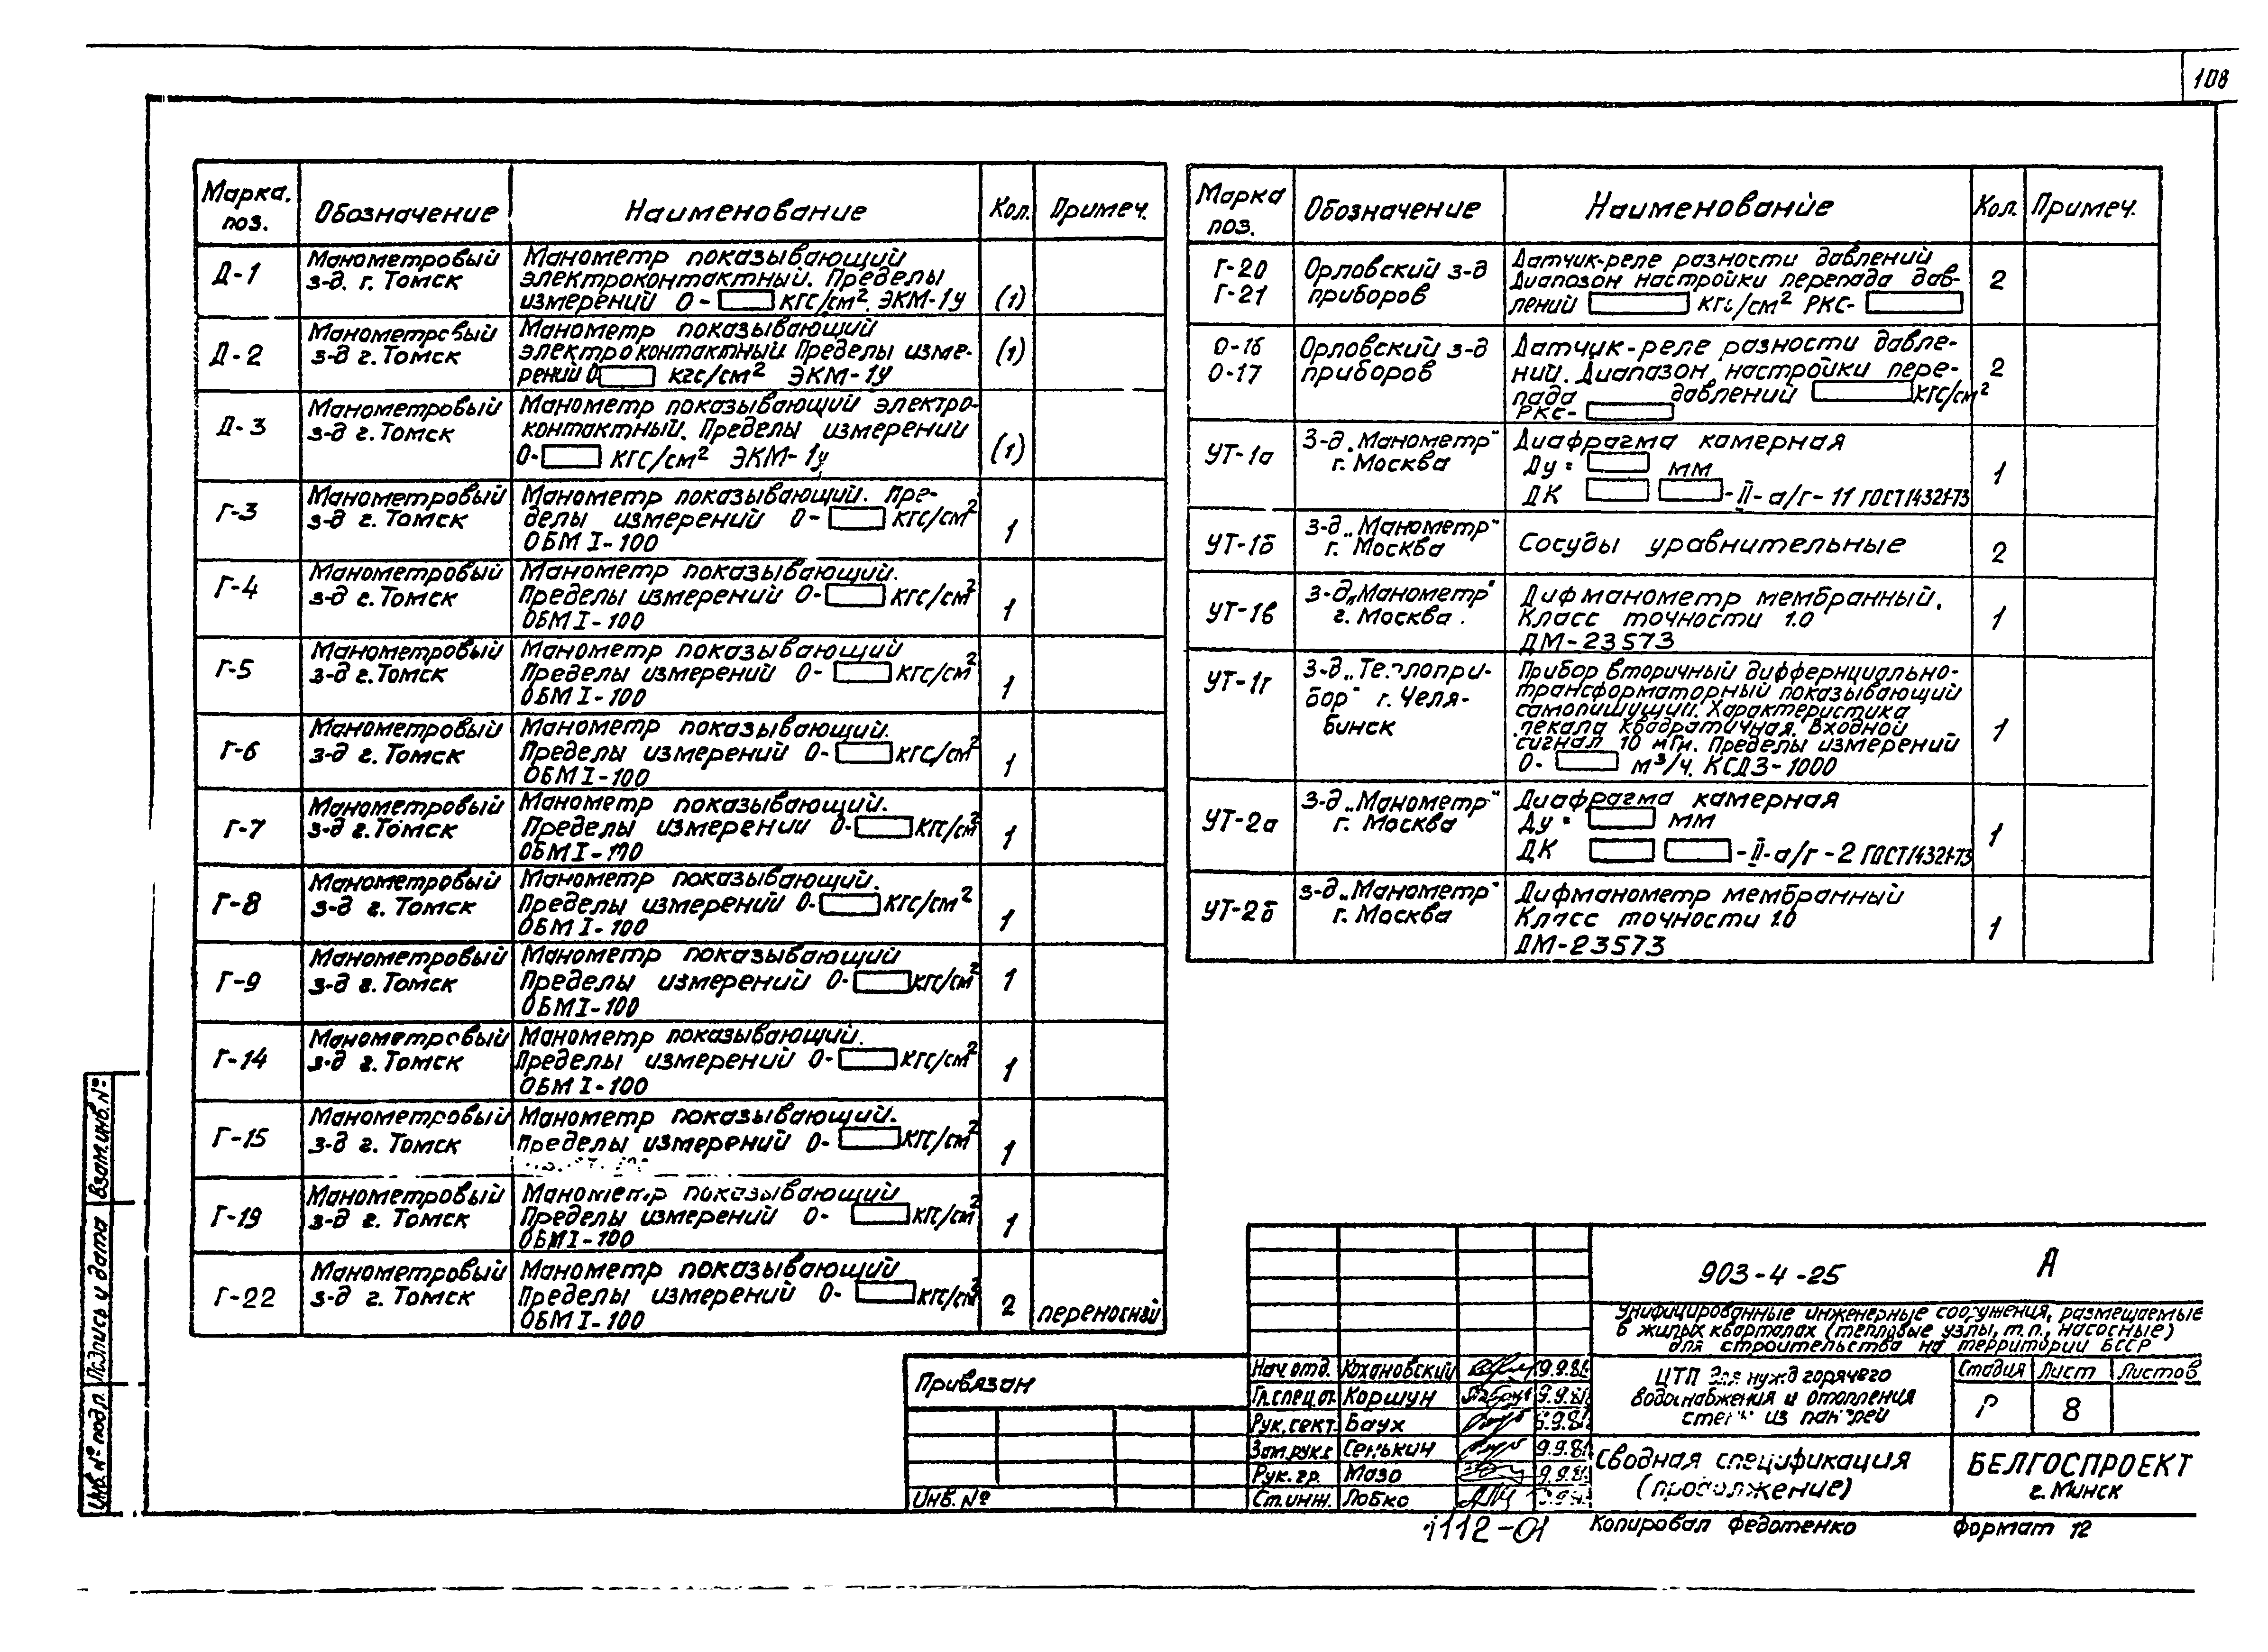 108
Марка. поз. Обозначение Наименование Кол. Примеч.
Д-1 Манометровый з-д. г. Томск
Манометр показывающий
электроконтактный. Пределы
измерений 0- кгс/см². ЭКМ-1у (1)
Д-2 Манометровый з-д г. Томск
Манометр показывающий
электроконтактный Пределы изме-
рений 0 кгс/см² ЭКМ-1у (1)
Д-3 Манометровый з-д г. Томск
Манометр показывающий электро-
контактный. Пределы измерений
0- кгс/см² ЭКМ-1у (1)
Г-3 Манометровый з-д г. Томск
Манометр показывающий. Пре-
делы измерений 0- кгс/см²
ОБМ I-100 1
Г-4 Манометровый з-д г. Томск
Манометр показывающий.
Пределы измерений 0- кгс/см²
ОБМ I-100 1
Г-5 Манометровый з-д г. Томск
Манометр показывающий
Пределы измерений 0- кгс/см²
ОБМ I-100 1
Г-6 Манометровый з-д г. Томск
Манометр показывающий.
Пределы измерений 0- кгс/см²
ОБМ I-100 1
Г-7 Манометровый з-д г. Томск
Манометр показывающий.
Пределы измерений 0- кгс/см²
ОБМ I-100 1
Г-8 Манометровый з-д г. Томск
Манометр показывающий.
Пределы измерений 0- кгс/см²
ОБМ I-100 1
Г-9 Манометровый з-д г. Томск
Манометр показывающий
Пределы измерений 0- кгс/см²
ОБМ I-100 1
Г-14 Манометровый з-д г. Томск
Манометр показывающий.
Пределы измерений 0- кгс/см²
ОБМ I-100 1
Г-15 Манометровый з-д г. Томск
Манометр показывающий.
Пределы измерений 0- кгс/см² 1
Г-19 Манометровый з-д г. Томск
Манометр показывающий
Пределы измерений 0- кгс/см²
ОБМ I-100 1
Г-22 Манометровый з-д г. Томск
Манометр показывающий
Пределы измерений 0- кгс/см²
ОБМ I-100 2 переносный
Марка поз. Обозначение Наименование Кол. Примеч.
Г-20 Г-21 Орловский з-д приборов
Датчик-реле разности давлений
Диапозон настройки перепада дав-
лений кгс/см² РКС- 2
0-16 0-17 Орловский з-д приборов
Датчик-реле разности давле-
ний. Диапазон настройки пере-
пада давлений кгс/см²
РКС- 2
УТ-1а З-д „Манометр" г. Москва
Диафрагма камерная
Ду= мм
ДК -II-а/г-11 ГОСТ14321-73 1
УТ-1б З-д „Манометр" г. Москва
Сосуды уравнительные 2
УТ-1в З-д „Манометр" г. Москва.
Дифманометр мембранный.
Класс точности 1.0
ДМ-23573 1
УТ-1г З-д „Теплопри-
бор" г. Челя-
бинск
Прибор вторичный диффернциально-
трансформаторный показывающий
самопишущий. Характеристика
лекала квадратичная. Входной
сигнал 10 мГн. Пределы измерений
0- м³/ч. КСД3-1000 1
УТ-2а З-д „Манометр" г. Москва
Диафрагма камерная
Ду= мм
ДК -II-а/г-2 ГОСТ14321-73 1
УТ-2б З-д „Манометр" г. Москва
Дифманометр мембранный
Класс точности 1.0
ДМ-23573 1
Взам.инв.№
Подпись и дата
Инв.№ подл.
Привязан
Инв. №
903-4-25 А
Унифицированные инженерные сооружения, размещаемые
в жилых кварталах (тепловые узлы, т.п., насосные)
для строительства на территории БССР
Нач отд. Кохановский 9.9.81
Гл.спец.от. Коршун 9.9.81
Рук. сект. Баух 9.9.81
Зам.рук.с Сенькин 9.9.81
Рук. гр. Мазо 9.9.81
Ст.инж. Лобко
ЦТП для нужд горячего
водоснабжения и отопления
стены из панелей
Стадия Лист Листов
Р 8
Сводная спецификация
(продолжение)
БЕЛГОСПРОЕКТ
г. Минск
1112-01 Копировал Федотенко Формат 12